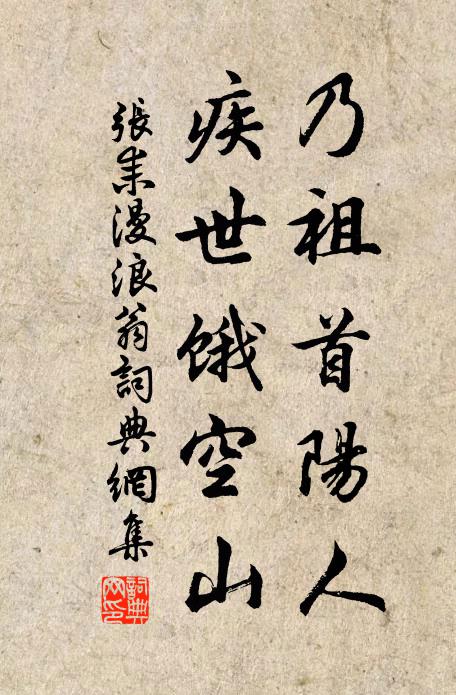 乃祖首陽人
疾世餓空山
張耒漫浪翁詞典網集
詞典网印